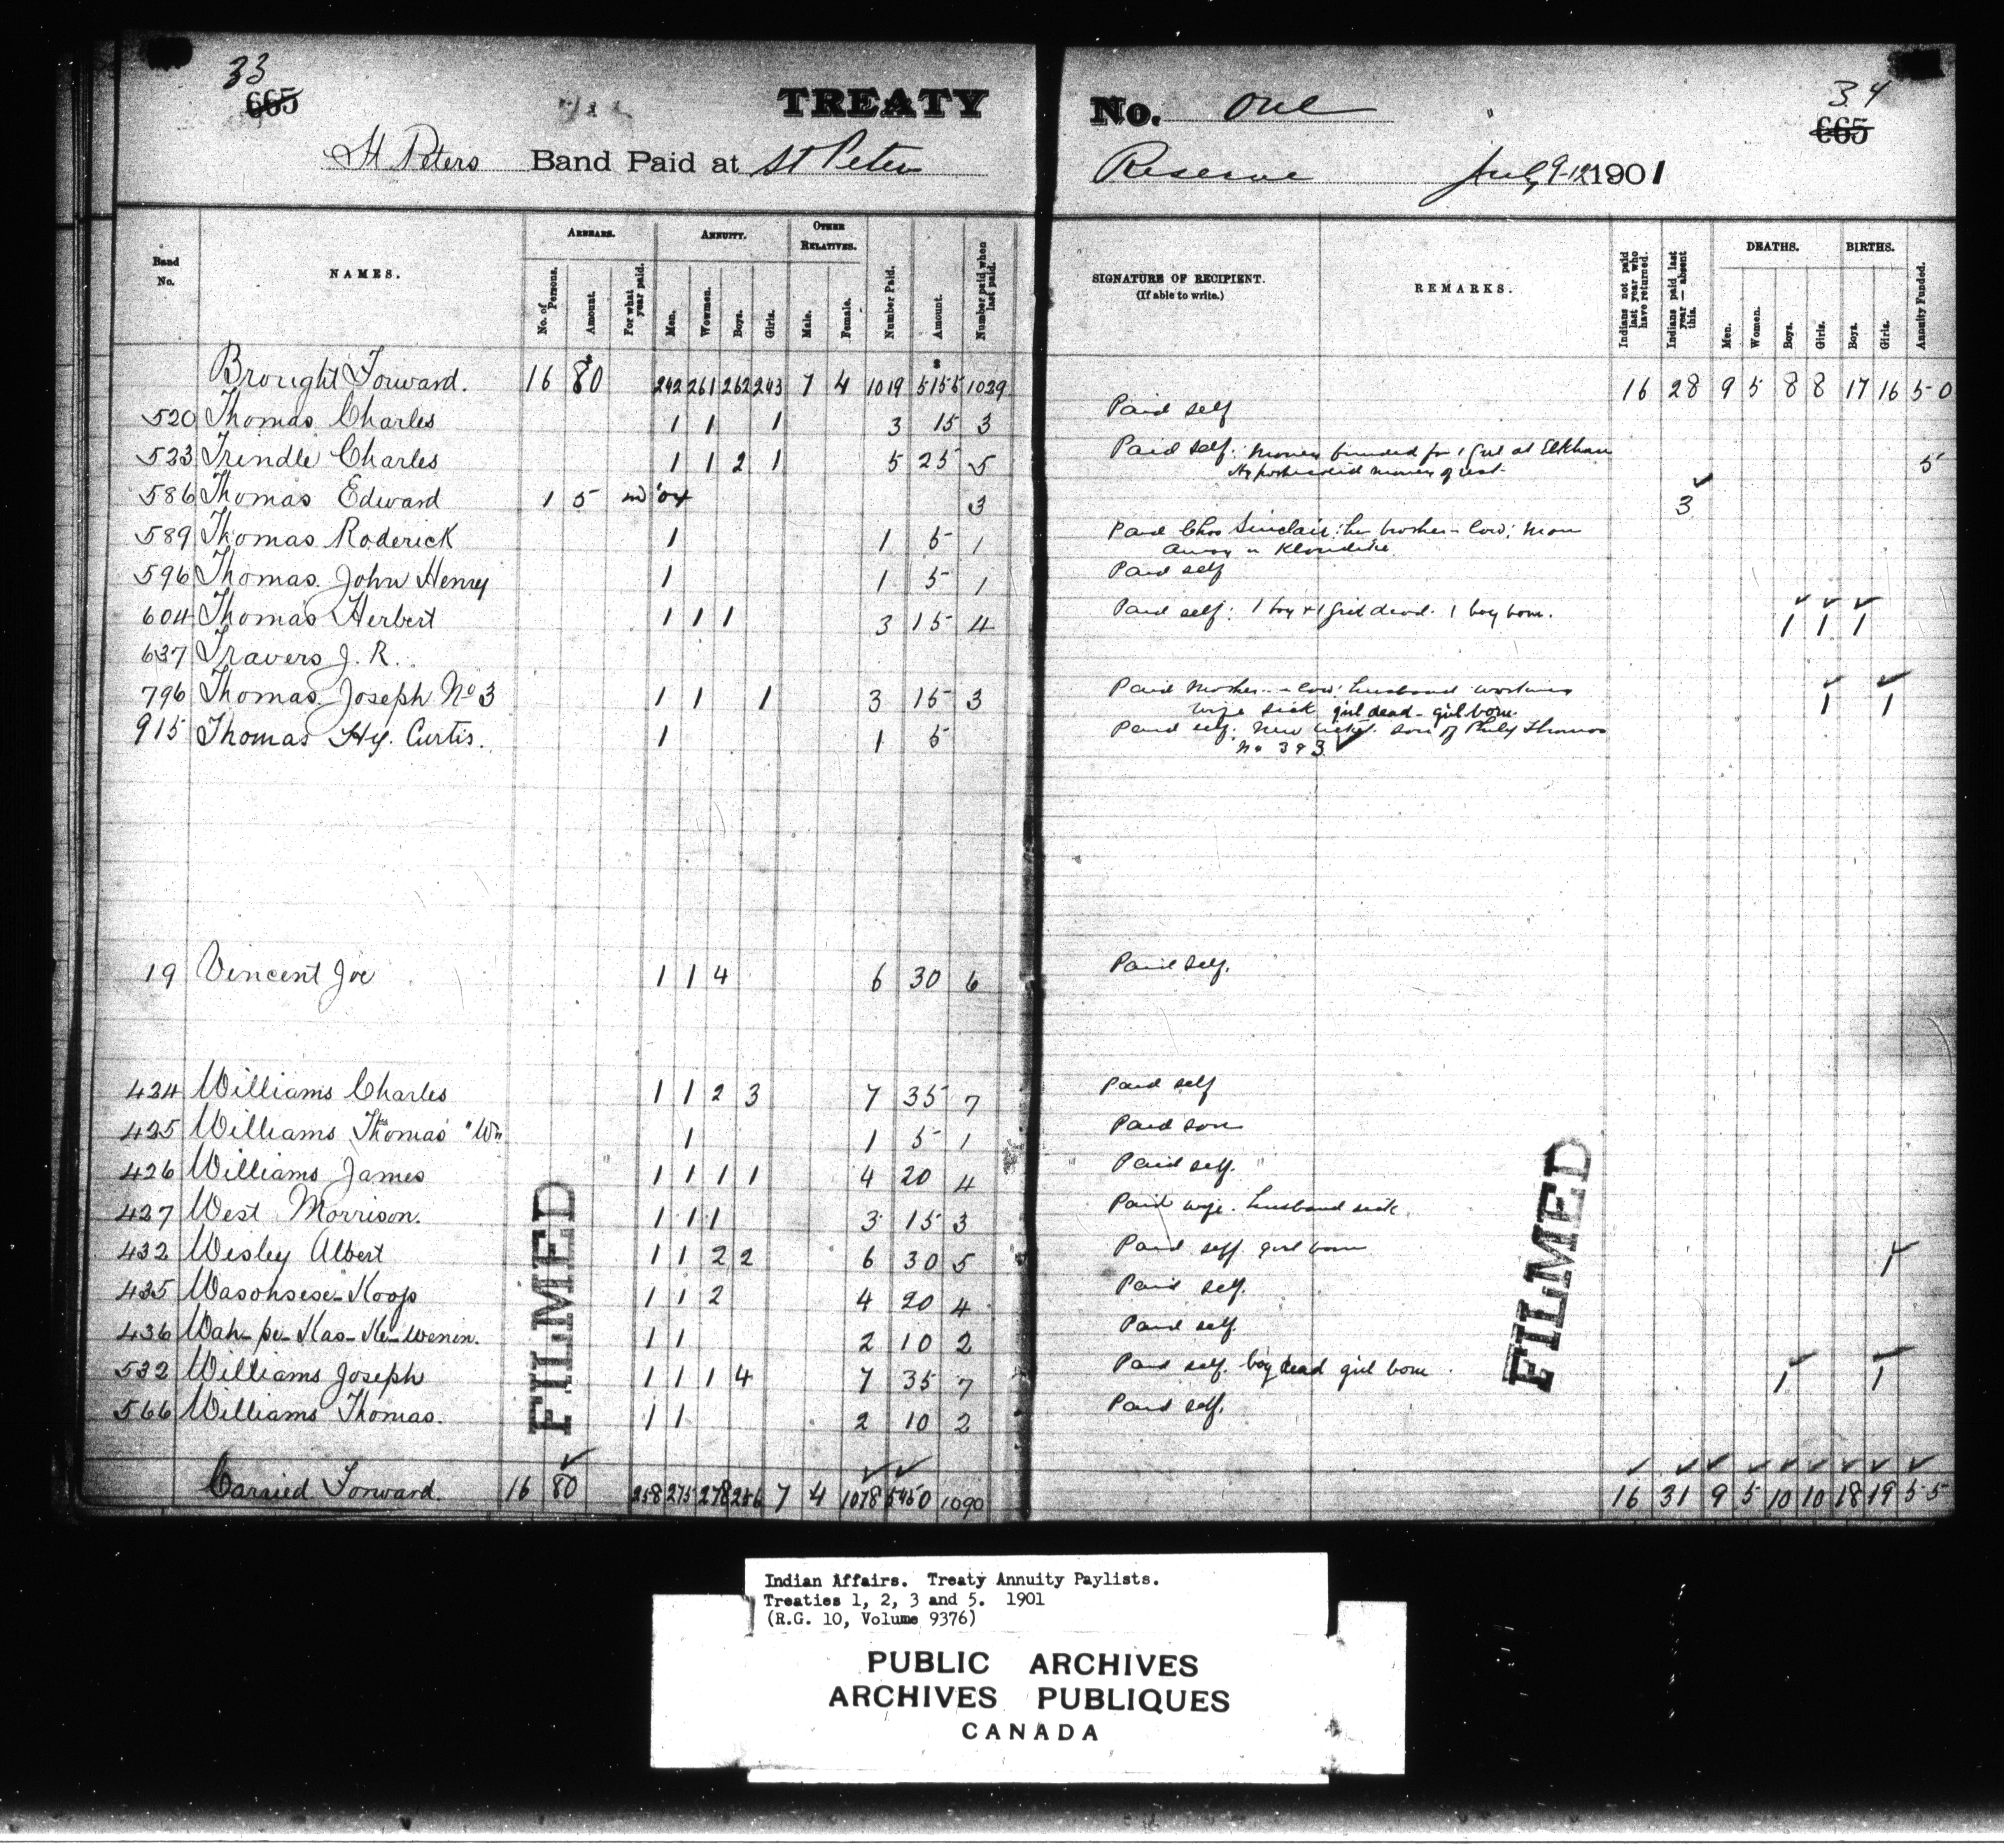 33
665
TREATY No. One
34
665
St Peters Band Paid at St Peters Reserve July 9-12 1901
Band No.
NAMES.
ARREARS.
No. of Persons.
Amount.
For what year paid.
ANNUITY.
Men.
Wowmen.
Boys.
Girls.
OTHER RELATIVES.
Male.
Female.
Number Paid.
Amount.
Number paid when last paid.
SIGNATURE OF RECIPIENT.
(If able to write.)
REMARKS.
Indians not paid last year who have returned.
Indians paid last year — absent this.
DEATHS.
Men.
Women.
Boys.
Girls.
BIRTHS.
Boys.
Girls.
Annuity Funded.
Brought Forward. 16 $80 242 261 262 243 7 4 1019 $5155 1029 16 28 9 5 8 8 17 16 50
520 Thomas Charles 1 1 1 3 15 3 Paid self
523 Trindle Charles 1 1 2 1 5 25 5 Paid self: money funded for 1 girl at Elkhorn 5
586 Thomas Edward 1 5 3 3
589 Thomas Roderick 1 1 5 1 Paid Chas Sinclair: his brother-in-law; man
away in Klondike
596 Thomas John Henry 1 1 5 1 Paid self
604 Thomas Herbert 1 1 1 3 15 4 Paid self: 1 boy & 1 girl dead. 1 boy born. 1 1 1
637 Travers J. R.
796 Thomas Joseph No 3 1 1 1 3 15 3 Paid Mother-in-law: husband working
wife sick girl dead - girl born. 1 1
915 Thomas Hy. Curtis. 1 1 5 Paid self: New ticket. son of Philip Thomas
No 393
19 Vincent Joe 1 1 4 6 30 6 Paid self.
424 Williams Charles 1 1 2 3 7 35 7 Paid self
425 Williams Thomas "W" 1 1 5 1 Paid son
426 Williams James 1 1 1 1 4 20 4 Paid self.
427 West Morrison. 1 1 1 3 15 3 Paid wife. husband sick
432 Wesley Albert 1 1 2 2 6 30 5 Paid self girl born 1
435 Wasohsese-Koop 1 1 2 4 20 4 Paid self.
436 Wah-pe-Kas-Ke-Wenin. 1 1 2 10 2 Paid self.
532 Williams Joseph 1 1 1 4 7 35 7 Paid self. boy dead girl born 1 1
566 Williams Thomas. 1 1 2 10 2 Paid self.
Carried Forward. 16 80 258 275 278 256 7 4 1078 5450 1090 16 31 9 5 10 10 18 19 55
FILMED
FILMED
Indian Affairs. Treaty Annuity Paylists.
Treaties 1, 2, 3 and 5. 1901
(R.G. 10, Volume 9376)
PUBLIC ARCHIVES
ARCHIVES PUBLIQUES
CANADA